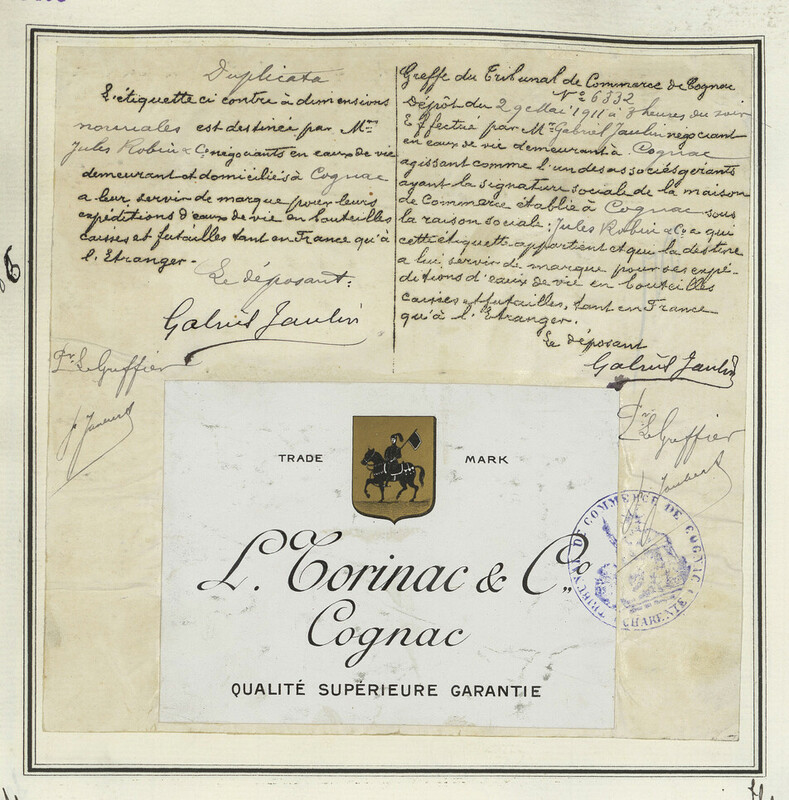 Duplicata
L'étiquette ci contre à dimensions
normales est destinée par Mrs
Jules Robin & Co négociants en eaux de vie
demeurant et domiciliés à Cognac
a leur servir de marque pour leurs
expéditions d'eaux de vie en bouteilles
caisses et futailles tant en France qu'à
l'Etranger -
Le déposant:
Gabriel Jaulin
Pr Le Greffier
Greffe du Tribunal de Commerce de Cognac
No 6332
Dépôt du 29 Mai 1911 à 3 heures du soir
Effectué par Mr Gabriel Jaulin négociant
en eaux de vie demeurant à Cognac
agissant comme l'un des associés gérants
ayant la signature sociale de la maison
de Commerce établie à Cognac sous
la raison sociale: Jules Robin & Co a qui
cette étiquette appartient et qui la destine
a lui servir de marque pour ses expé-
ditions d'eaux de vie en bouteilles
caisses et futailles, tant en France
qu'à l'Etranger.
Le déposant
Gabriel Jaulin
Pr Le Greffier
TRADE MARK
L. Torinac & Co.
Cognac
QUALITÉ SUPÉRIEURE GARANTIE
TRIBUNAL DE COMMERCE DE COGNAC
CHARENTE